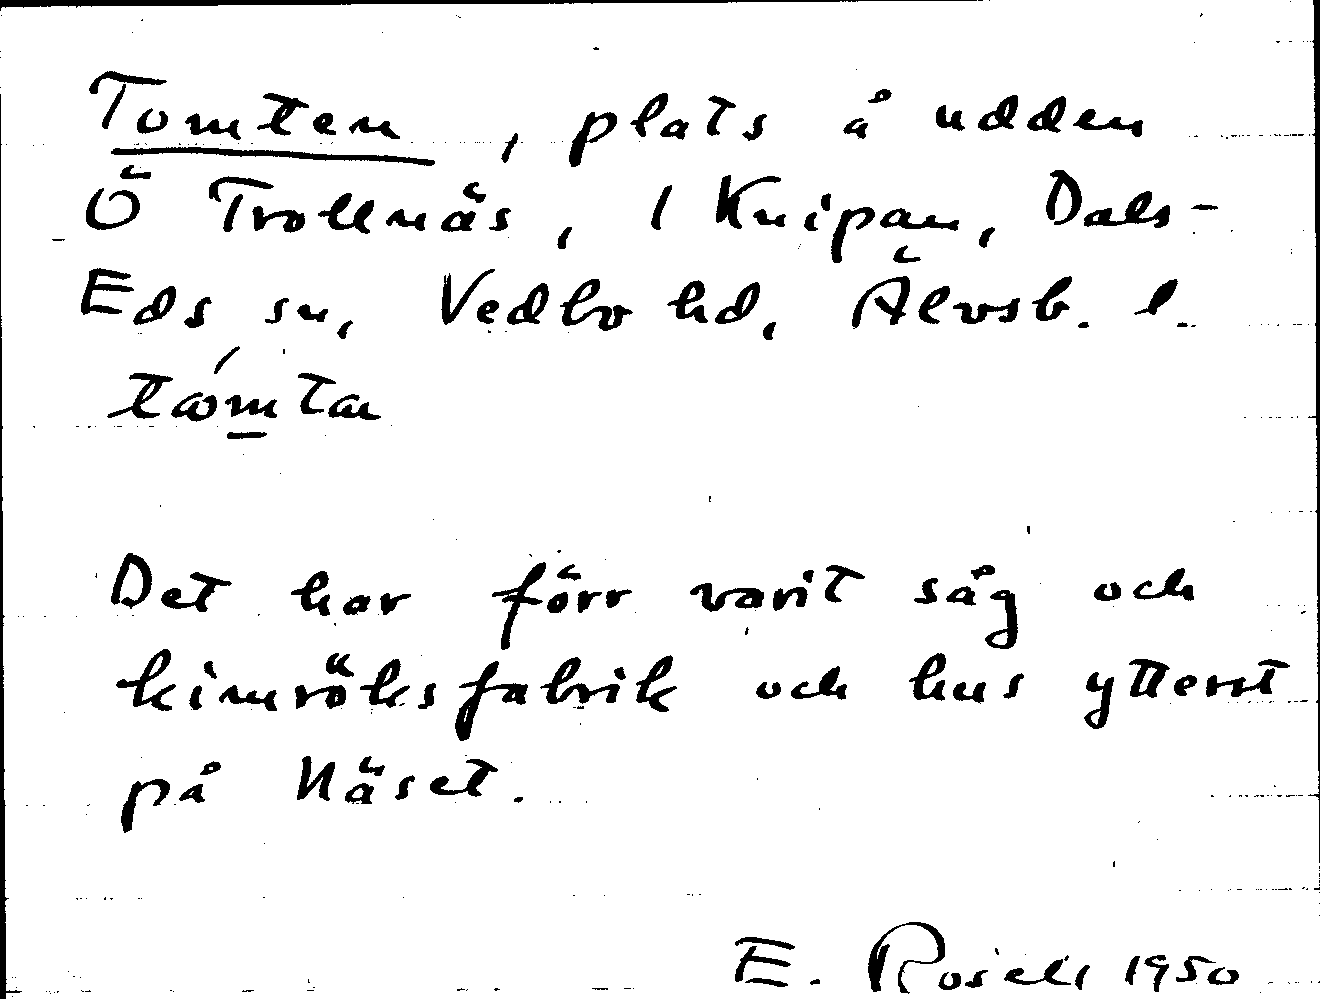 Tomten, plats å udden
Ö Trollnäs, 1 Knipan, Dals-
Eds sn, Vedbo hd, Älvsb. l.
tómta
Det har förr varit såg och
kimröksfabrik och hus ytterst
på Näset.
E. Rosell 1950